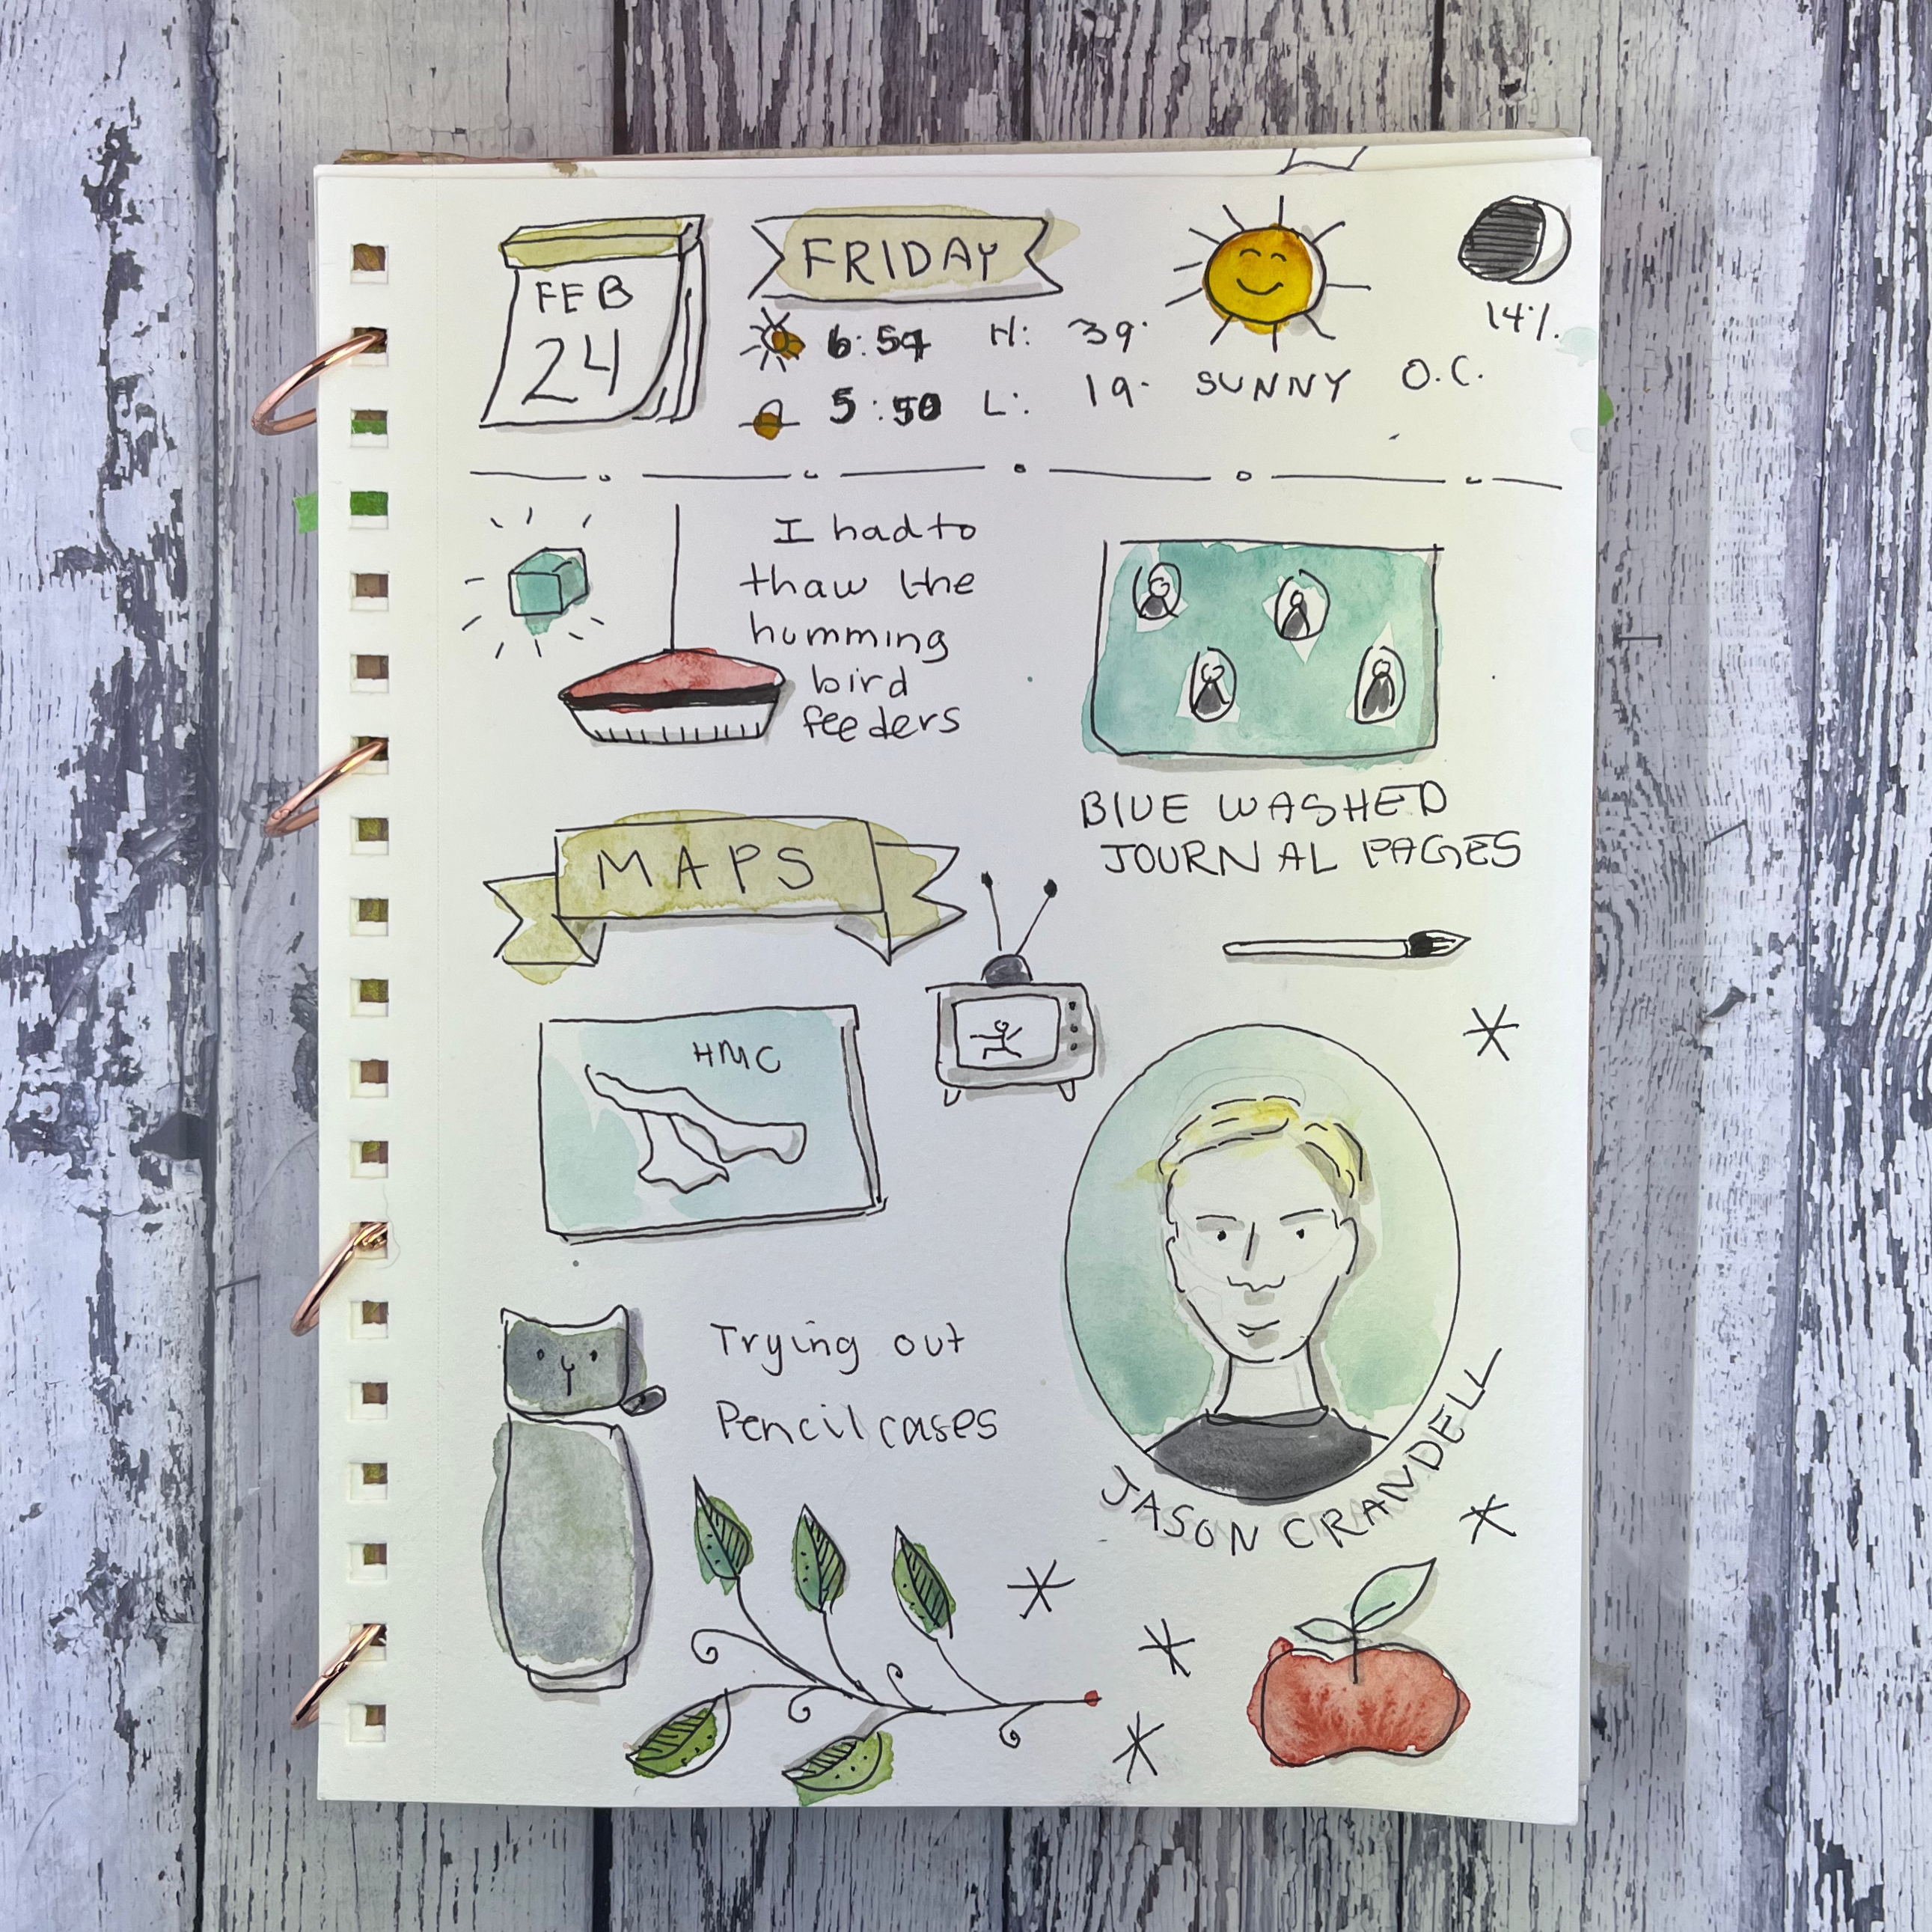 FEB
24
FRIDAY
6:59 H: 39°
5:50 L: 19° SUNNY O.C.
14%.
I had to
thaw the
humming
bird
feeders
BLUE WASHED
JOURNAL PAGES
MAPS
HMC
Trying out
Pencil cases
JASON CRANDELL